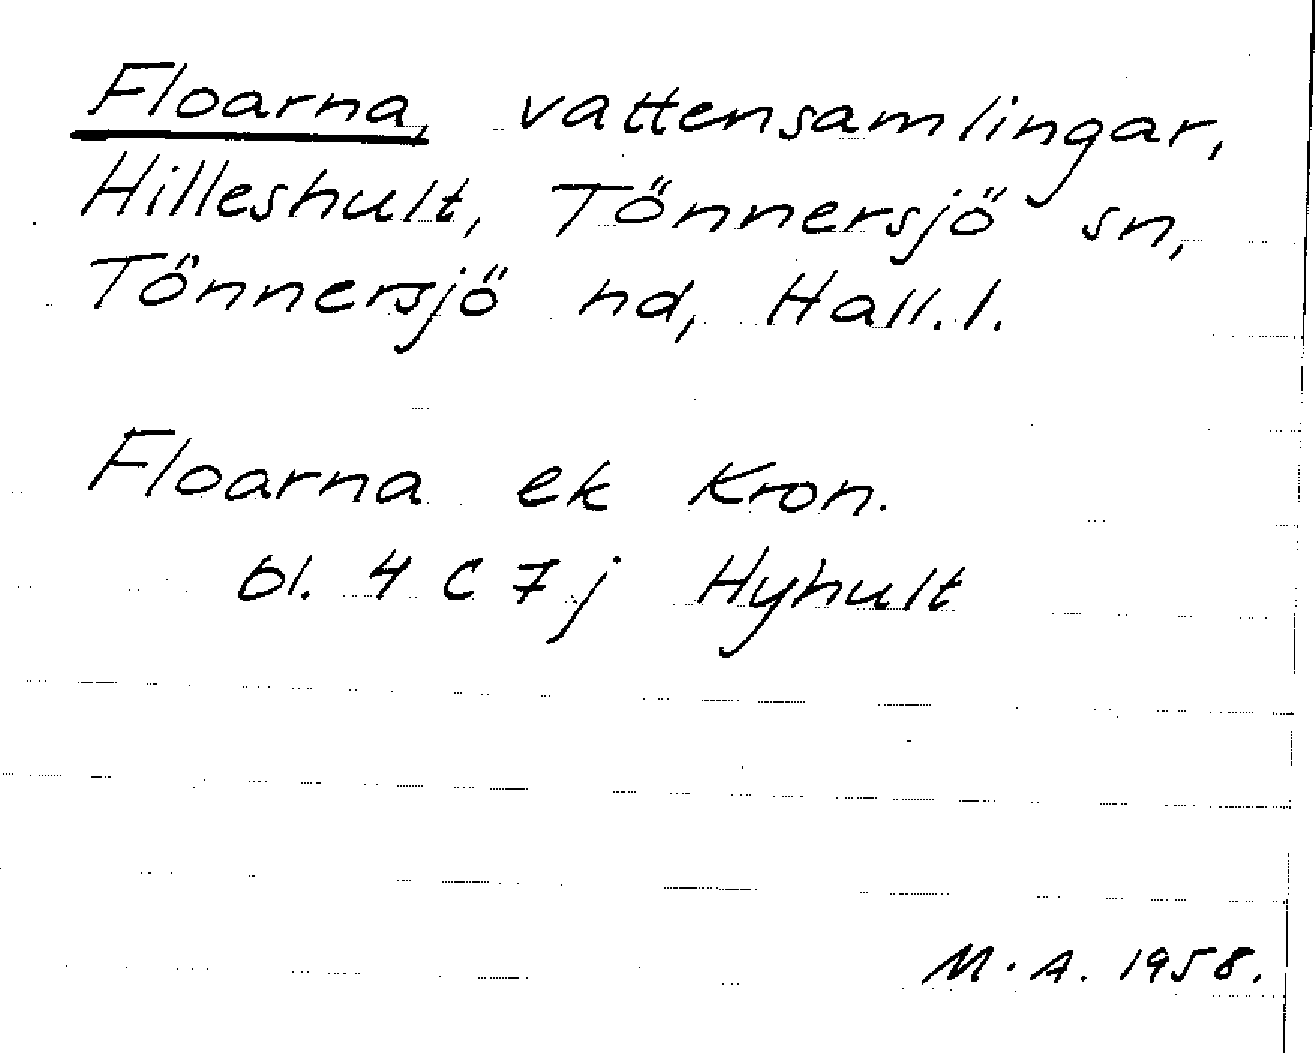 Floarna, vattensamlingar,
Hilleshult, Tönnersjö sn,
Tönnersjö hd, Hall. l.
Floarna ek Kron.
bl. 4 C 7 j Hyhult
M. A. 1958.